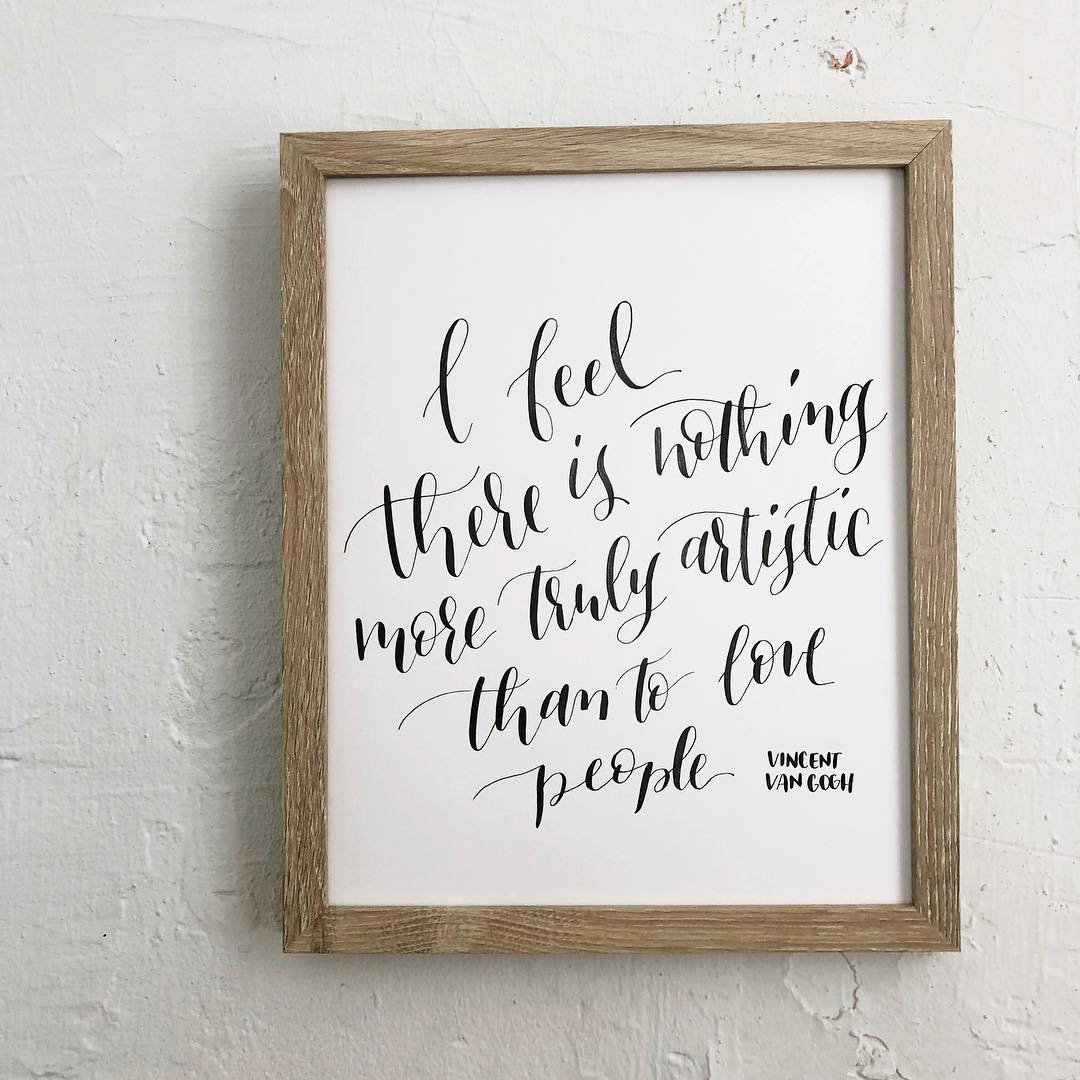 I feel
there is nothing
more truly artistic
than to love
people
VINCENT
VAN GOGH